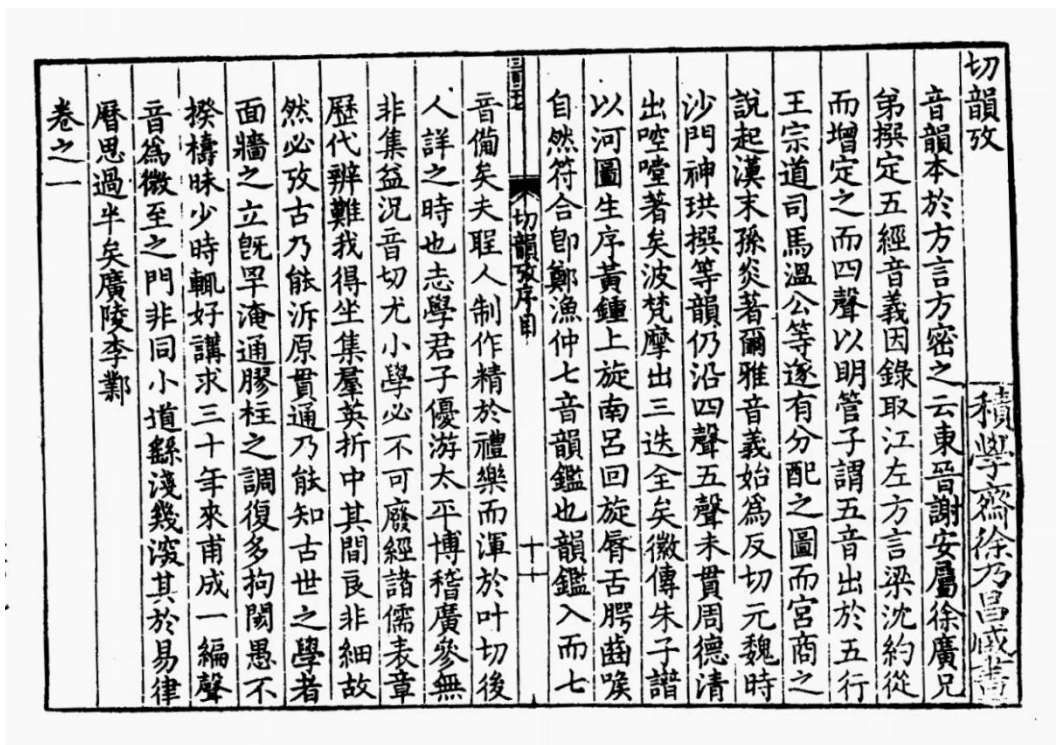 切韻攷
積學齋徐乃昌藏書
音韻本於方言方密之云東晉謝安屬徐廣兄
弟撰定五經音義因錄取江左方言梁沈約從
而增定之而四聲以明管子謂五音出於五行
王宗道司馬溫公等遂有分配之圖而宮商之
說起漢末孫炎著爾雅音義始爲反切元魏時
沙門神珙撰等韻仍沿四聲五聲未貫周德清
出啌嘡著矣波梵摩出三迭全矣徽傳朱子譜
以河圖生序黃鍾上旋南呂回旋脣舌腭齒喉
自然符合卽鄭漁仲七音韻鑑也韻鑑入而七
切韻攷序目
十一
音備矣夫聖人制作精於禮樂而渾於叶切後
人詳之時也志學君子優游太平博稽廣參無
非集益況音切尤小學必不可廢經諸儒表章
歷代辨難我得坐集羣英折中其間良非細故
然必攷古乃能泝原貫通乃能知古世之學者
面牆之立旣罕淹通膠柱之調復多拘閡愚不
揆檮昧少時輒好講求三十年來甫成一編聲
音爲微至之門非同小道繇淺幾深其於易律
曆思過半矣廣陵李鄴
卷之一